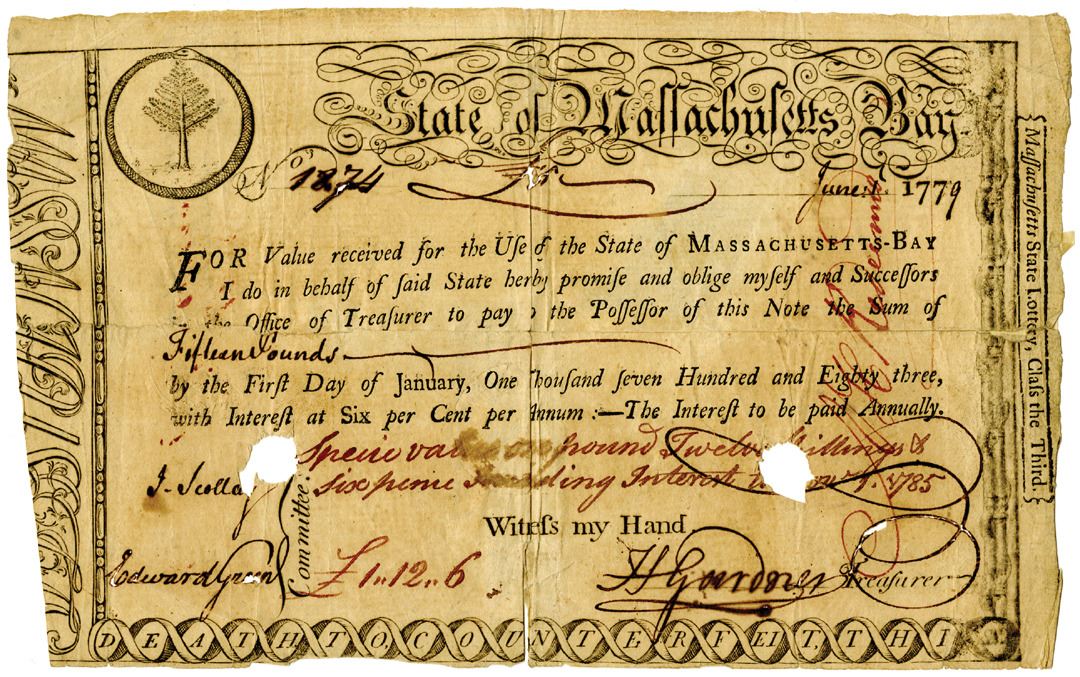 State of Massachusetts Bay
No. 1874
£15
June 1. 1779
FOR Value received for the Use of the State of MASSACHUSETTS-BAY
I do in behalf of ſaid State herby promise and oblige myself and Succeſſors
the Office of Treaſurer to pay the Poſſeſſor of this Note the Sum of
Fifteen Pounds
by the Firſt Day of January, One Thouſand ſeven Hundred and Eighty three,
with Intereſt at Six per Cent per Annum:—The Intereſt to be paid Annually.
Specie value pound Twelve Shillings &
sixpence Including Interest 1785
J. Scollay
Committee.
Witneſs my Hand
Edward Green
£1.12.6
H Gardner Treaſurer
DEATH.TO.COUNTERFEIT.THI
Maſſachuſetts State Lottery, Claſs the Third.